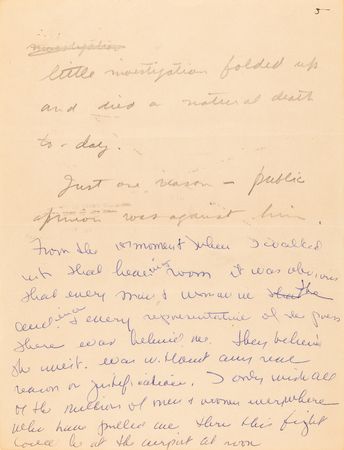 5
investigation
little investigation folded up
and died a natural death
to-day.
Just one reason - public
opinion was against him.
From the 1st moment when I walked
into that hearing room it was obvious
that every man & woman in the
and every representative of the press
there was behind me. They believe
the invest. was without any real
reason or justification. I only wish all
of the millions of men & women everywhere
who have pulled me thru this fight
could be at the airport at noon